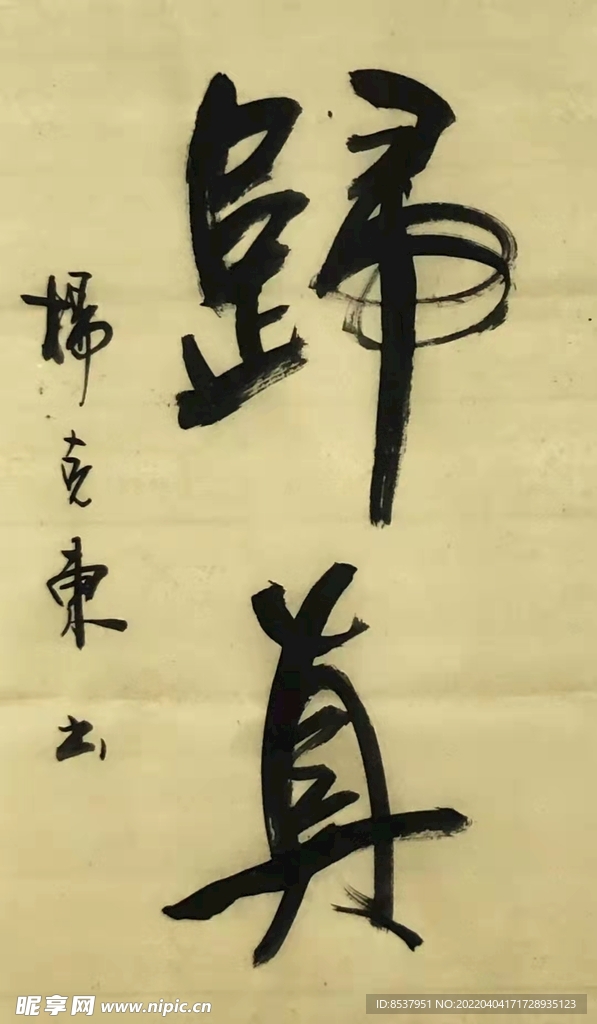 歸真
楊克東书
昵享网 www.nipic.cn
ID:8537951 NO:20220404171728935123